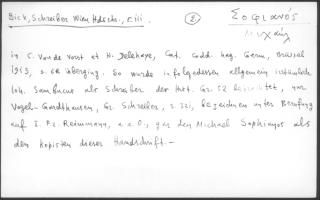 Bick, Schreiber Wien. Hdschr., c iii. ② Σοφιανός
Μιχαήλ
in C. Van de Vorst et H. Delehaye, Cat. Codd. hag. Germ., Brüssel
1913, s. 68 überging. So wurde infolgedessen allgemein irrtümlich
Joh. Sambucus als Schreiber der Hist. Gr. 52 betrachtet, nur
Vogel-Gardthausen, Gr. Schreiber, s. 321, bezeichnen unter Berufung
auf I. Fz. Reimmann, a.a.O., gar den Michael Sophianos als
den Kopisten dieser Handschrift.-